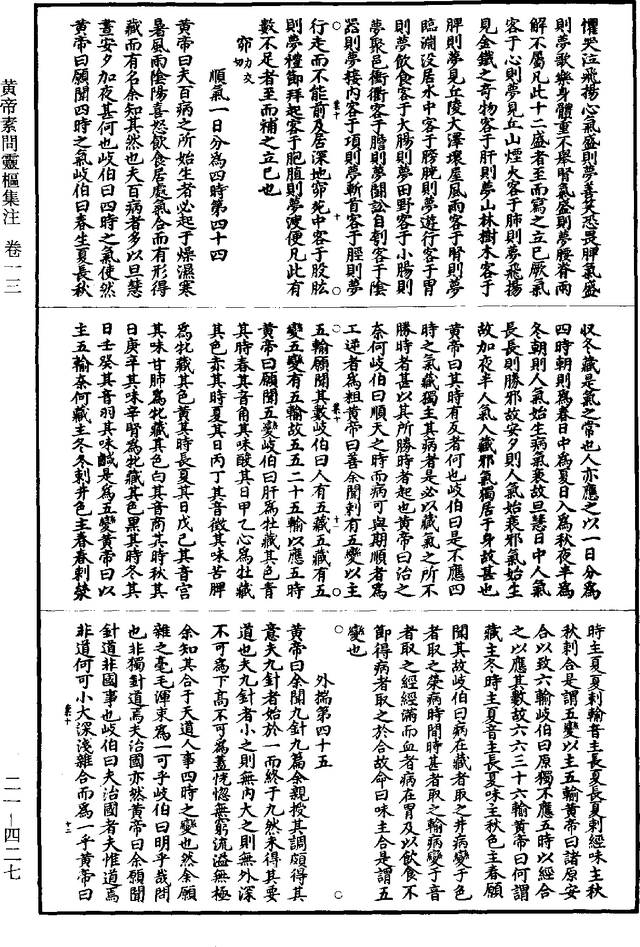 懼哭泣飛揚心氣盛則夢善笑恐畏脾氣盛
則夢歌樂身體重不舉腎氣盛則夢腰脊兩
解不屬凡此十二盛者至而寫之立已厥氣
客于心則夢見丘山煙火客于肺則夢飛揚
見金鐵之奇物客于肝則夢山林樹木客于
脾則夢見丘陵大澤壞屋風雨客于腎則夢
臨淵沒居水中客于膀胱則夢遊行客于胃
則夢飲食客于大腸則夢田野客于小腸則
夢聚邑衝衢客于膽則夢鬭訟自刳客于陰
器則夢接內客于項則夢斬首客于脛則夢
行走而不能前及居深地窌苑中客于股肱
則夢禮御拜起客于胞䐈則夢溲便凡此有
數不足者至而補之立已也
窌力交切
順氣一日分爲四時第四十四
黃帝曰夫百病之所始生者必起于燥濕寒
暑風雨陰陽喜怒飲食居處氣合而有形得
藏而有名余知其然也夫百病者多以旦慧
晝安夕加夜甚何也岐伯曰四時之氣使然
黃帝曰願聞四時之氣岐伯曰春生夏長秋
收冬藏是氣之常也人亦應之以一日分爲
四時朝則爲春日中爲夏日入爲秋夜半爲
冬朝則人氣始生病氣衰故旦慧日中人氣
長長則勝邪故安夕則人氣始衰邪氣始生
故加夜半人氣入藏邪氣獨居于身故甚也
黃帝曰其時有反者何也岐伯曰是不應四
時之氣藏獨主其病者是必以藏氣之所不
勝時者甚以其所勝時者起也黃帝曰治之
奈何岐伯曰順天之時而病可與期順者爲
工逆者爲粗黃帝曰善余聞刺有五變以主
五輸願聞其數岐伯曰人有五藏五藏有五
變五變有五輸故五五二十五輸以應五時
黃帝曰願聞五變岐伯曰肝爲牡藏其色青
其時春其音角其味酸其日甲乙心爲牡藏
其色赤其時夏其日丙丁其音徵其味苦脾
爲牝藏其色黃其時長夏其日戊己其音宮
其味甘肺爲牝藏其色白其音商其時秋其
日庚辛其味辛腎爲牝藏其色黑其時冬其
日壬癸其音羽其味鹹是爲五變黃帝曰以
主五輸奈何藏主冬冬刺井色主春春刺滎
時主夏夏刺輸音主長夏長夏刺經味主秋
秋刺合是謂五變以主五輸黃帝曰諸原安
合以致六輸岐伯曰原獨不應五時以經合
之以應其數故六六三十六輸黃帝曰何謂
藏主冬時主夏音主長夏味主秋色主春願
聞其故岐伯曰病在藏者取之井病變于色
者取之滎病時間時甚者取之輸病變于音
者取之經經滿而血者病在胃及以飲食不
節得病者取之於合故命曰味主合是謂五
變也
外揣第四十五
黃帝曰余聞九針九篇余親授其調頗得其
意夫九針者始於一而終于九然未得其要
道也夫九針者小之則無內大之則無外深
不可爲下高不可爲蓋恍惚無窮流溢無極
余知其合于天道人事四時之變也然余願
雜之毫毛渾束爲一可乎岐伯曰明乎哉問
也非獨針道焉夫治國亦然黃帝曰余願聞
針道非國事也岐伯曰夫治國者夫惟道焉
非道何可小大深淺雜合而爲一乎黃帝曰
黃帝素問靈樞集注 卷一三
二一－四二七